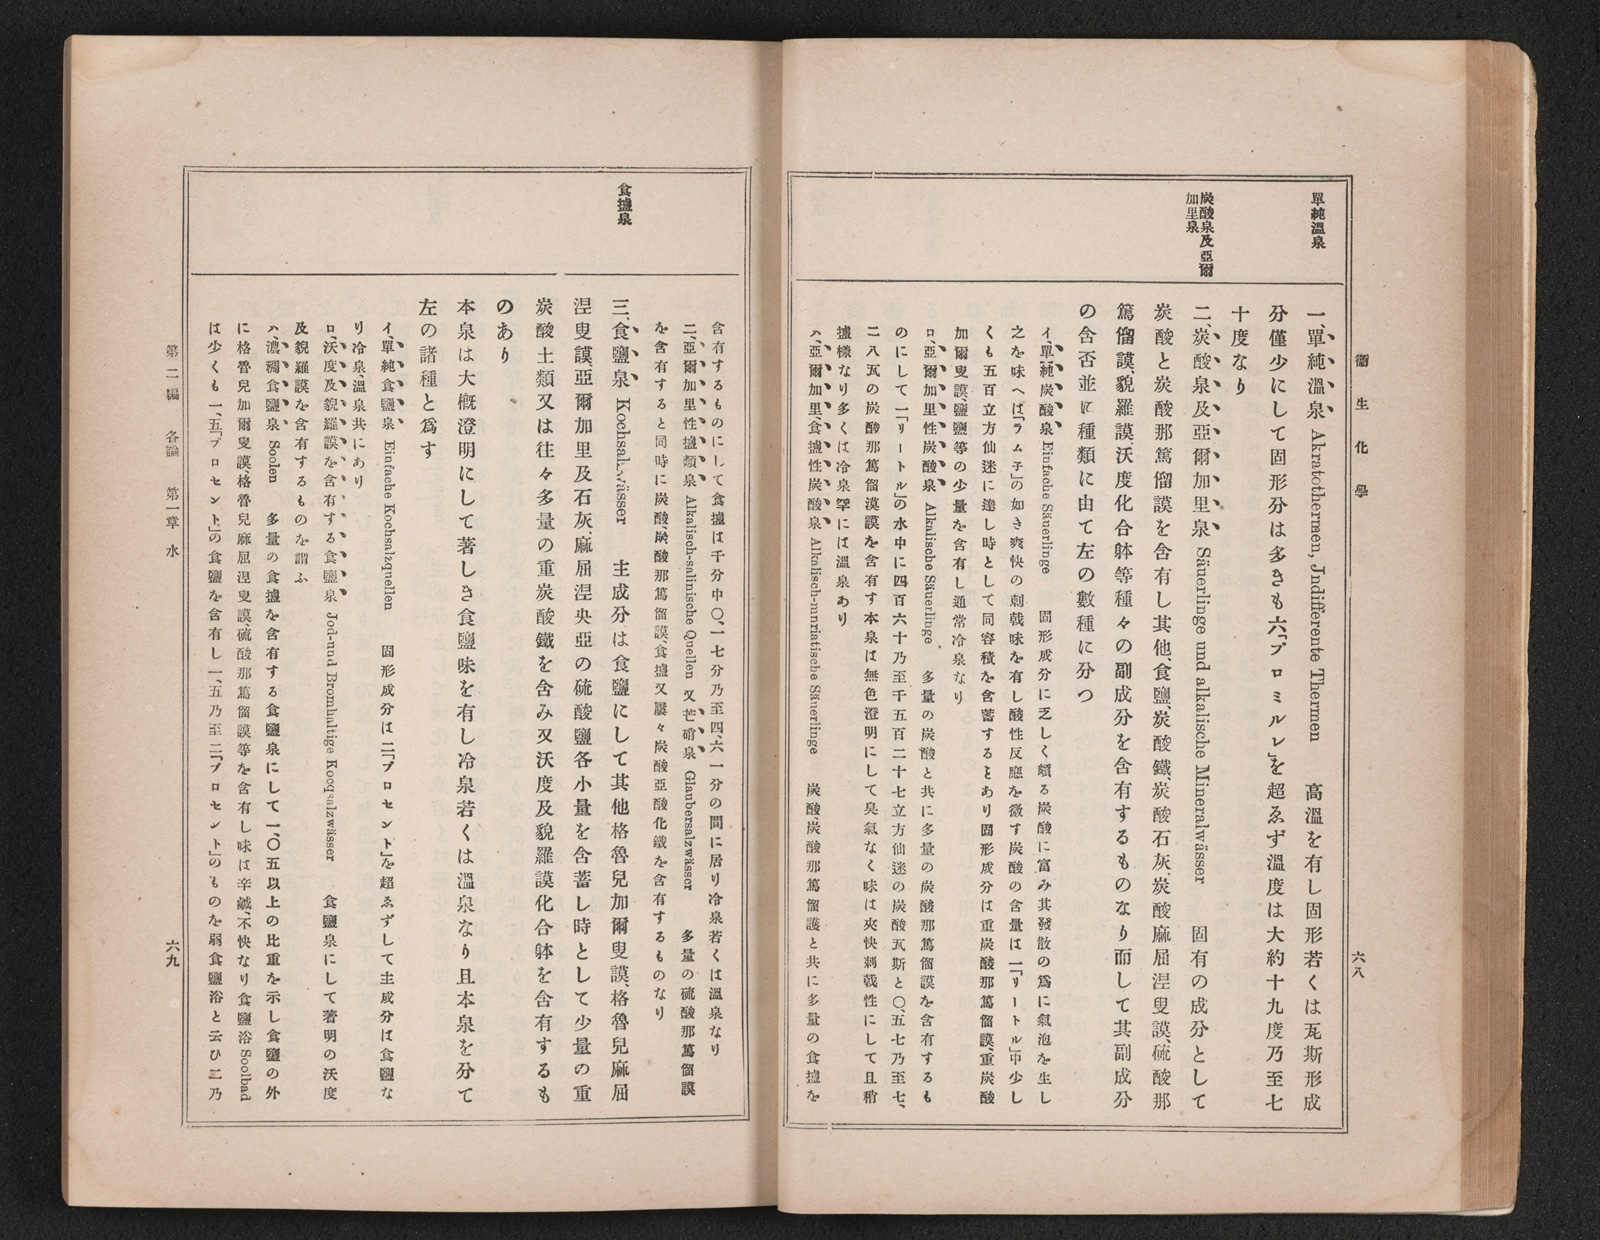 衞生化學
六八
單純溫泉
炭酸泉及亞爾
加里泉
一、單純溫泉 Akratothermen, Jndifferente Thermen 高溫を有し固形若くは瓦斯形成
分僅少にして固形分は多きも六「プロミルレ」を超ゑず溫度は大約十九度乃至七
十度なり
二、炭酸泉及亞爾加里泉 Säuerlinge und alkalische Mineralwässer 固有の成分として
炭酸と炭酸那篤倔謨を含有し其他、食鹽、炭酸鐵、炭酸石灰、炭酸麻屈涅叟謨、硫酸那
篤倔謨、貌羅謨、沃度化合躰等種々の副成分を含有するものなり而して其副成分
の含否並に種類に由て左の數種に分つ
イ、單純炭酸泉 Einfache Säuerlinge 固形成分に乏しく頗る炭酸に富み其發散の爲に氣泡を生し
之を味へば「ラムチ」の如き爽快の刺戟味を有し酸性反應を徵す炭酸の含量は一「リートル」中少し
くも五百立方仙迷に達し時として同容積を含蓄するとあり固形成分は重炭酸那篤倔謨、重炭酸
加爾叟謨、鹽鹽等の少量を含有し通常冷泉なり
ロ、亞爾加里性炭酸泉 Alkalische Säuerlinge 多量の炭酸と共に多量の炭酸那篤倔謨を含有するも
のにして一「リートル」の水中に四百六十乃至千五百二十七立方仙迷の炭酸瓦斯と〇、五七乃至七、
二八瓦の炭酸那篤倔漠謨を含有す本泉は無色澄明にして臭氣なく味は爽快刺戟性にして且稍
鹽樣なり多くは冷泉罕には溫泉あり
ハ、亞爾加里、食鹽性炭酸泉 Alkalisch-mnriatische Säuerlinge 炭酸炭酸那篤倔護と共に多量の食鹽を
食鹽泉
含有するものにして食鹽は千分中〇、一七分乃至四、六一分の間に居り冷泉若くは溫泉なり
ニ、亞爾加里性鹽類泉 Alkalisch-salinische Quellen 又芒硝泉 Glaubersalzwässer 多量の硫酸那篤倔謨
を含有すると同時に炭酸、炭酸那篤倔謨、食鹽又屢々炭酸亞酸化鐵を含有するものなり
三、食鹽泉 Kochsalzwässer 主成分は食鹽にして其他格魯兒加爾叟謨、格魯兒麻屈
涅叟謨、亞爾加里及石灰、麻屈涅失亞の硫酸鹽各小量を含蓄し時として少量の重
炭酸土類又は往々多量の重炭酸鐵を含み又沃度及貌羅謨化合躰を含有するも
のあり
本泉は大槪澄明にして著しき食鹽味を有し冷泉若くは溫泉なり且本泉を分て
左の諸種と爲す
イ、單純食鹽泉 Einfache Kochsalzquellen 固形成分は二「プロセント」を超ゑずして主成分は食鹽な
り冷泉、溫泉共にあり
ロ、沃度及貌羅謨を含有する食鹽泉 Jod-und Bromhaltige Kocqsalzwässer 食鹽泉にして著明の沃度
及貌羅謨を含有するものを謂ふ
ハ、濃稠食鹽泉 Soolen 多量の食鹽を含有する食鹽泉にして一、〇五以上の比重を示し食鹽の外
に格魯兒加爾叟謨、格魯兒麻屈涅叟謨、硫酸那篤倔謨等を含有し味は辛鹹、不快なり食鹽浴 Soolbad
は少くも一、五「プロセント」の食鹽を含有し一、五乃至二「プロセント」のものを弱食鹽浴と云ひ二乃
第二編 各論 第一章 水
六九